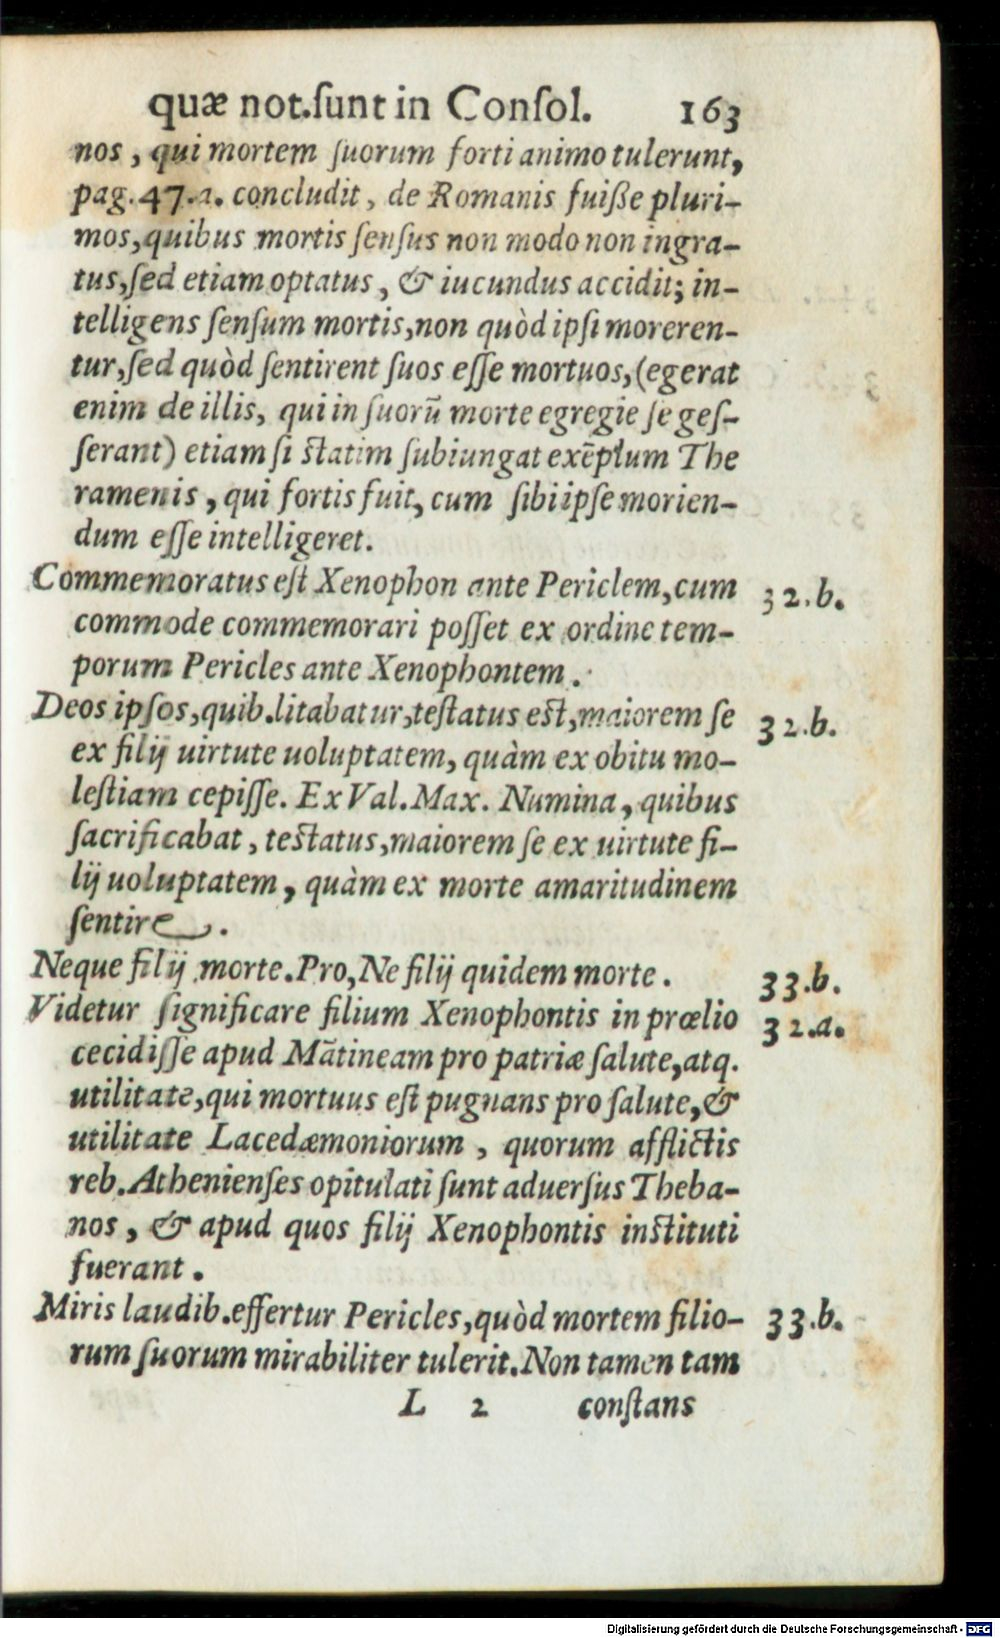 quæ not.ſunt in Conſol. 163
nos, qui mortem ſuorum forti animo tulerunt,
pag. 47.a. concludit, de Romanis fuiße pluri-
mos, quibus mortis ſenſus non modo non ingra-
tus, ſed etiam optatus, & iucundus accidit; in-
telligens ſenſum mortis, non quòd ipſi moreren-
tur, ſed quòd ſentirent ſuos eſſe mortuos, (egerat
enim de illis, qui in ſuorū morte egregie ſe geſ-
ſerant) etiam ſi ſtatim ſubiungat exēplum The
ramenis, qui fortis fuit, cum ſibi ipſe morien-
dum eſſe intelligeret.
Commemoratus eſt Xenophon ante Periclem, cum 32.b.
commode commemorari poſſet ex ordine tem-
porum Pericles ante Xenophontem.
Deos ipſos, quib. litabatur, teſtatus eſt, maiorem ſe 32.b.
ex filij uirtute uoluptatem, quàm ex obitu mo-
leſtiam cepiſſe. Ex Val. Max. Numina, quibus
ſacrificabat, teſtatus, maiorem ſe ex uirtute fi-
lij uoluptatem, quàm ex morte amaritudinem
ſentire.
Neque filij morte. Pro, Ne filij quidem morte. 33.b.
Videtur ſignificare filium Xenophontis in prœlio 32.a.
cecidiſſe apud Mātineam pro patriæ ſalute, atq.
utilitate, qui mortuus eſt pugnans pro ſalute, &
utilitate Lacedæmoniorum, quorum afflictis
reb. Athenienſes opitulati ſunt aduerſus Theba-
nos, & apud quos filij Xenophontis inſtituti
fuerant.
Miris laudib. effertur Pericles, quòd mortem filio- 33.b.
rum ſuorum mirabiliter tulerit. Non tamen tam
L 2 conſtans
Digitalisierung gefördert durch die Deutsche Forschungsgemeinschaft - DFG